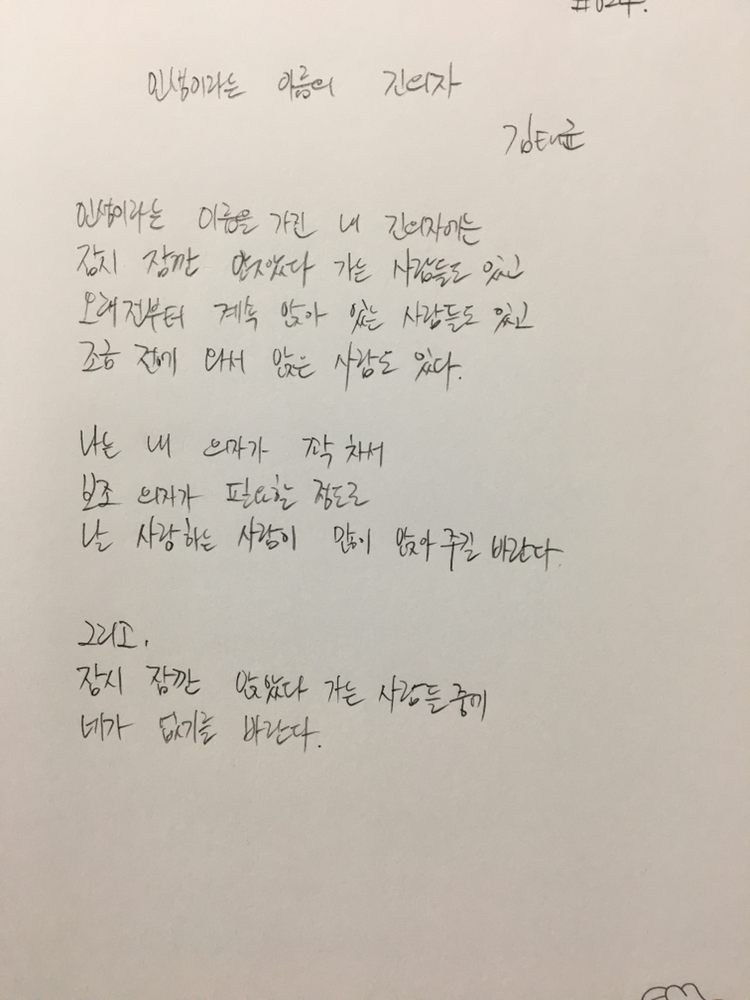 #024.
인생이라는 이름의 긴의자
김태균
인생이라는 이름을 가진 내 긴의자에는
잠시 잠깐 앉았다 가는 사람들도 있고
오래전부터 계속 앉아 있는 사람들도 있고
조금 전에 와서 앉은 사람도 있다.
나는 내 의자가 꽉 차서
보조 의자가 필요할 정도로
날 사랑하는 사람이 많이 앉아 주길 바란다.
그리고,
잠시 잠깐 앉았다 가는 사람들 중에
네가 없기를 바란다.